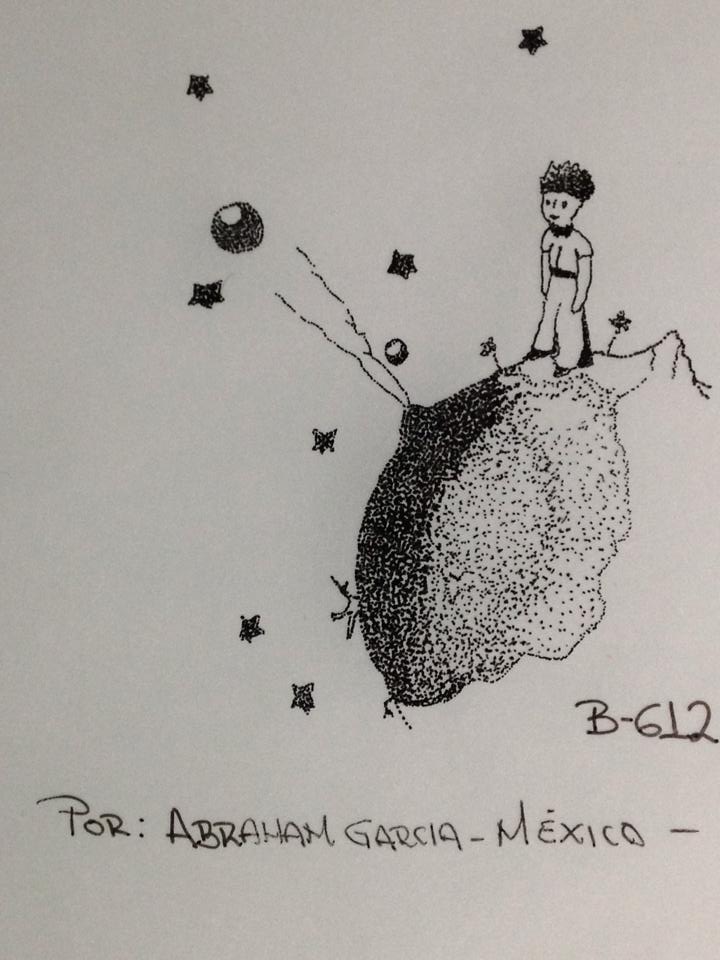 B-612
POR: ABRAHAM GARCIA - MÉXICO -